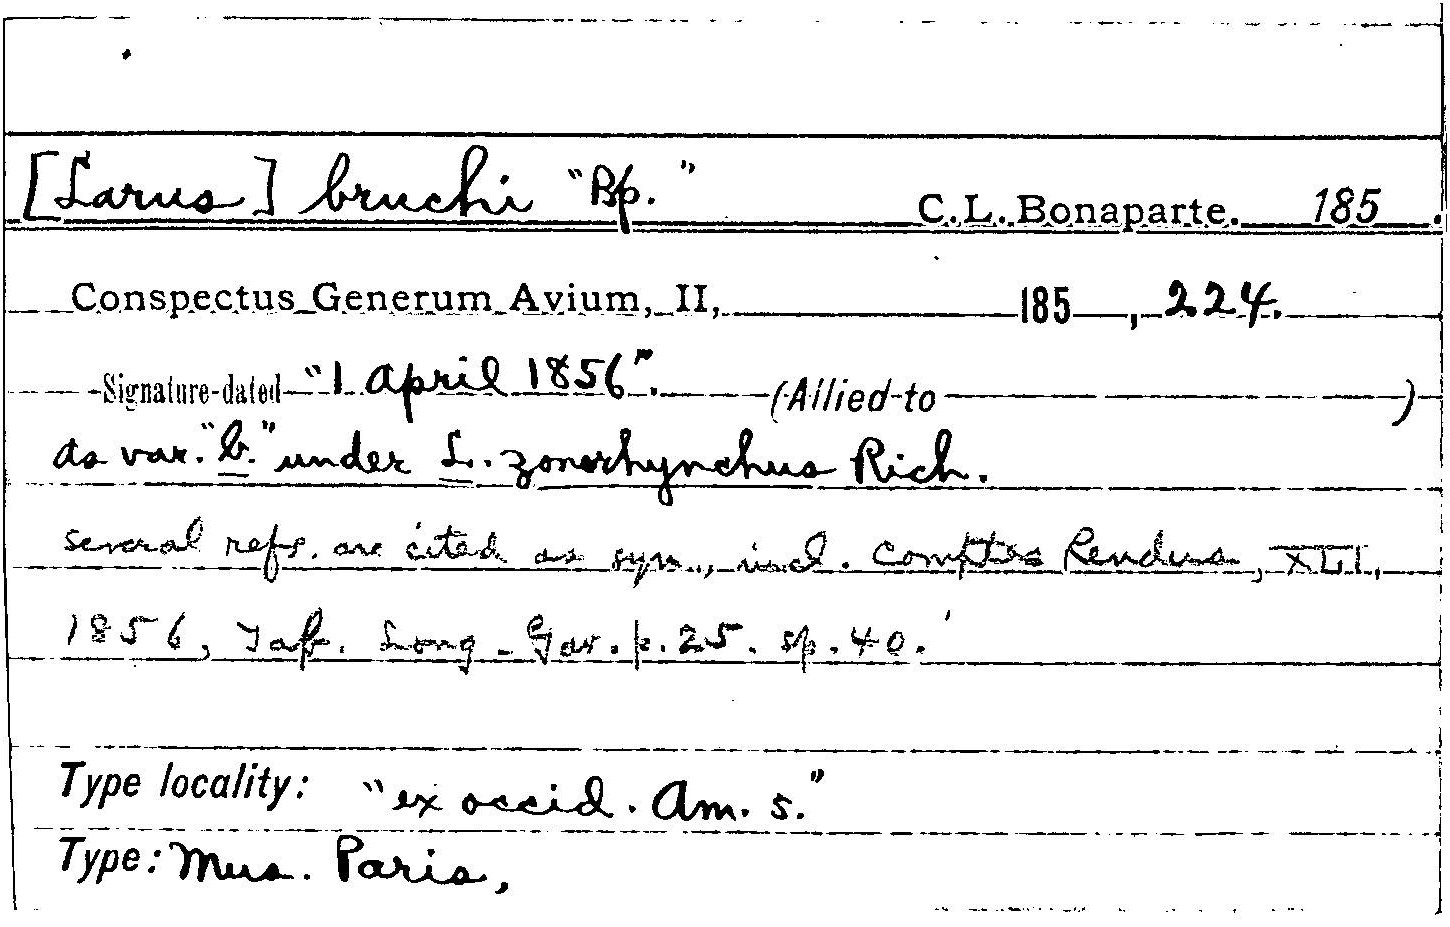 [Larus] bruchi "Bp." C.L. Bonaparte. 185 .
Conspectus Generum Avium, II, 185 , 224.
Signature-dated "1 April 1856". (Allied to )
as var. "b." under L. zonorhynchus Rich.
several refs. are cited as syn., incl. Comptes Rendus, XLII,
1856, Tab. Long-Gav. p. 25. sp. 40.
Type locality: "ex occid. Am. s."
Type: Mus. Paris,